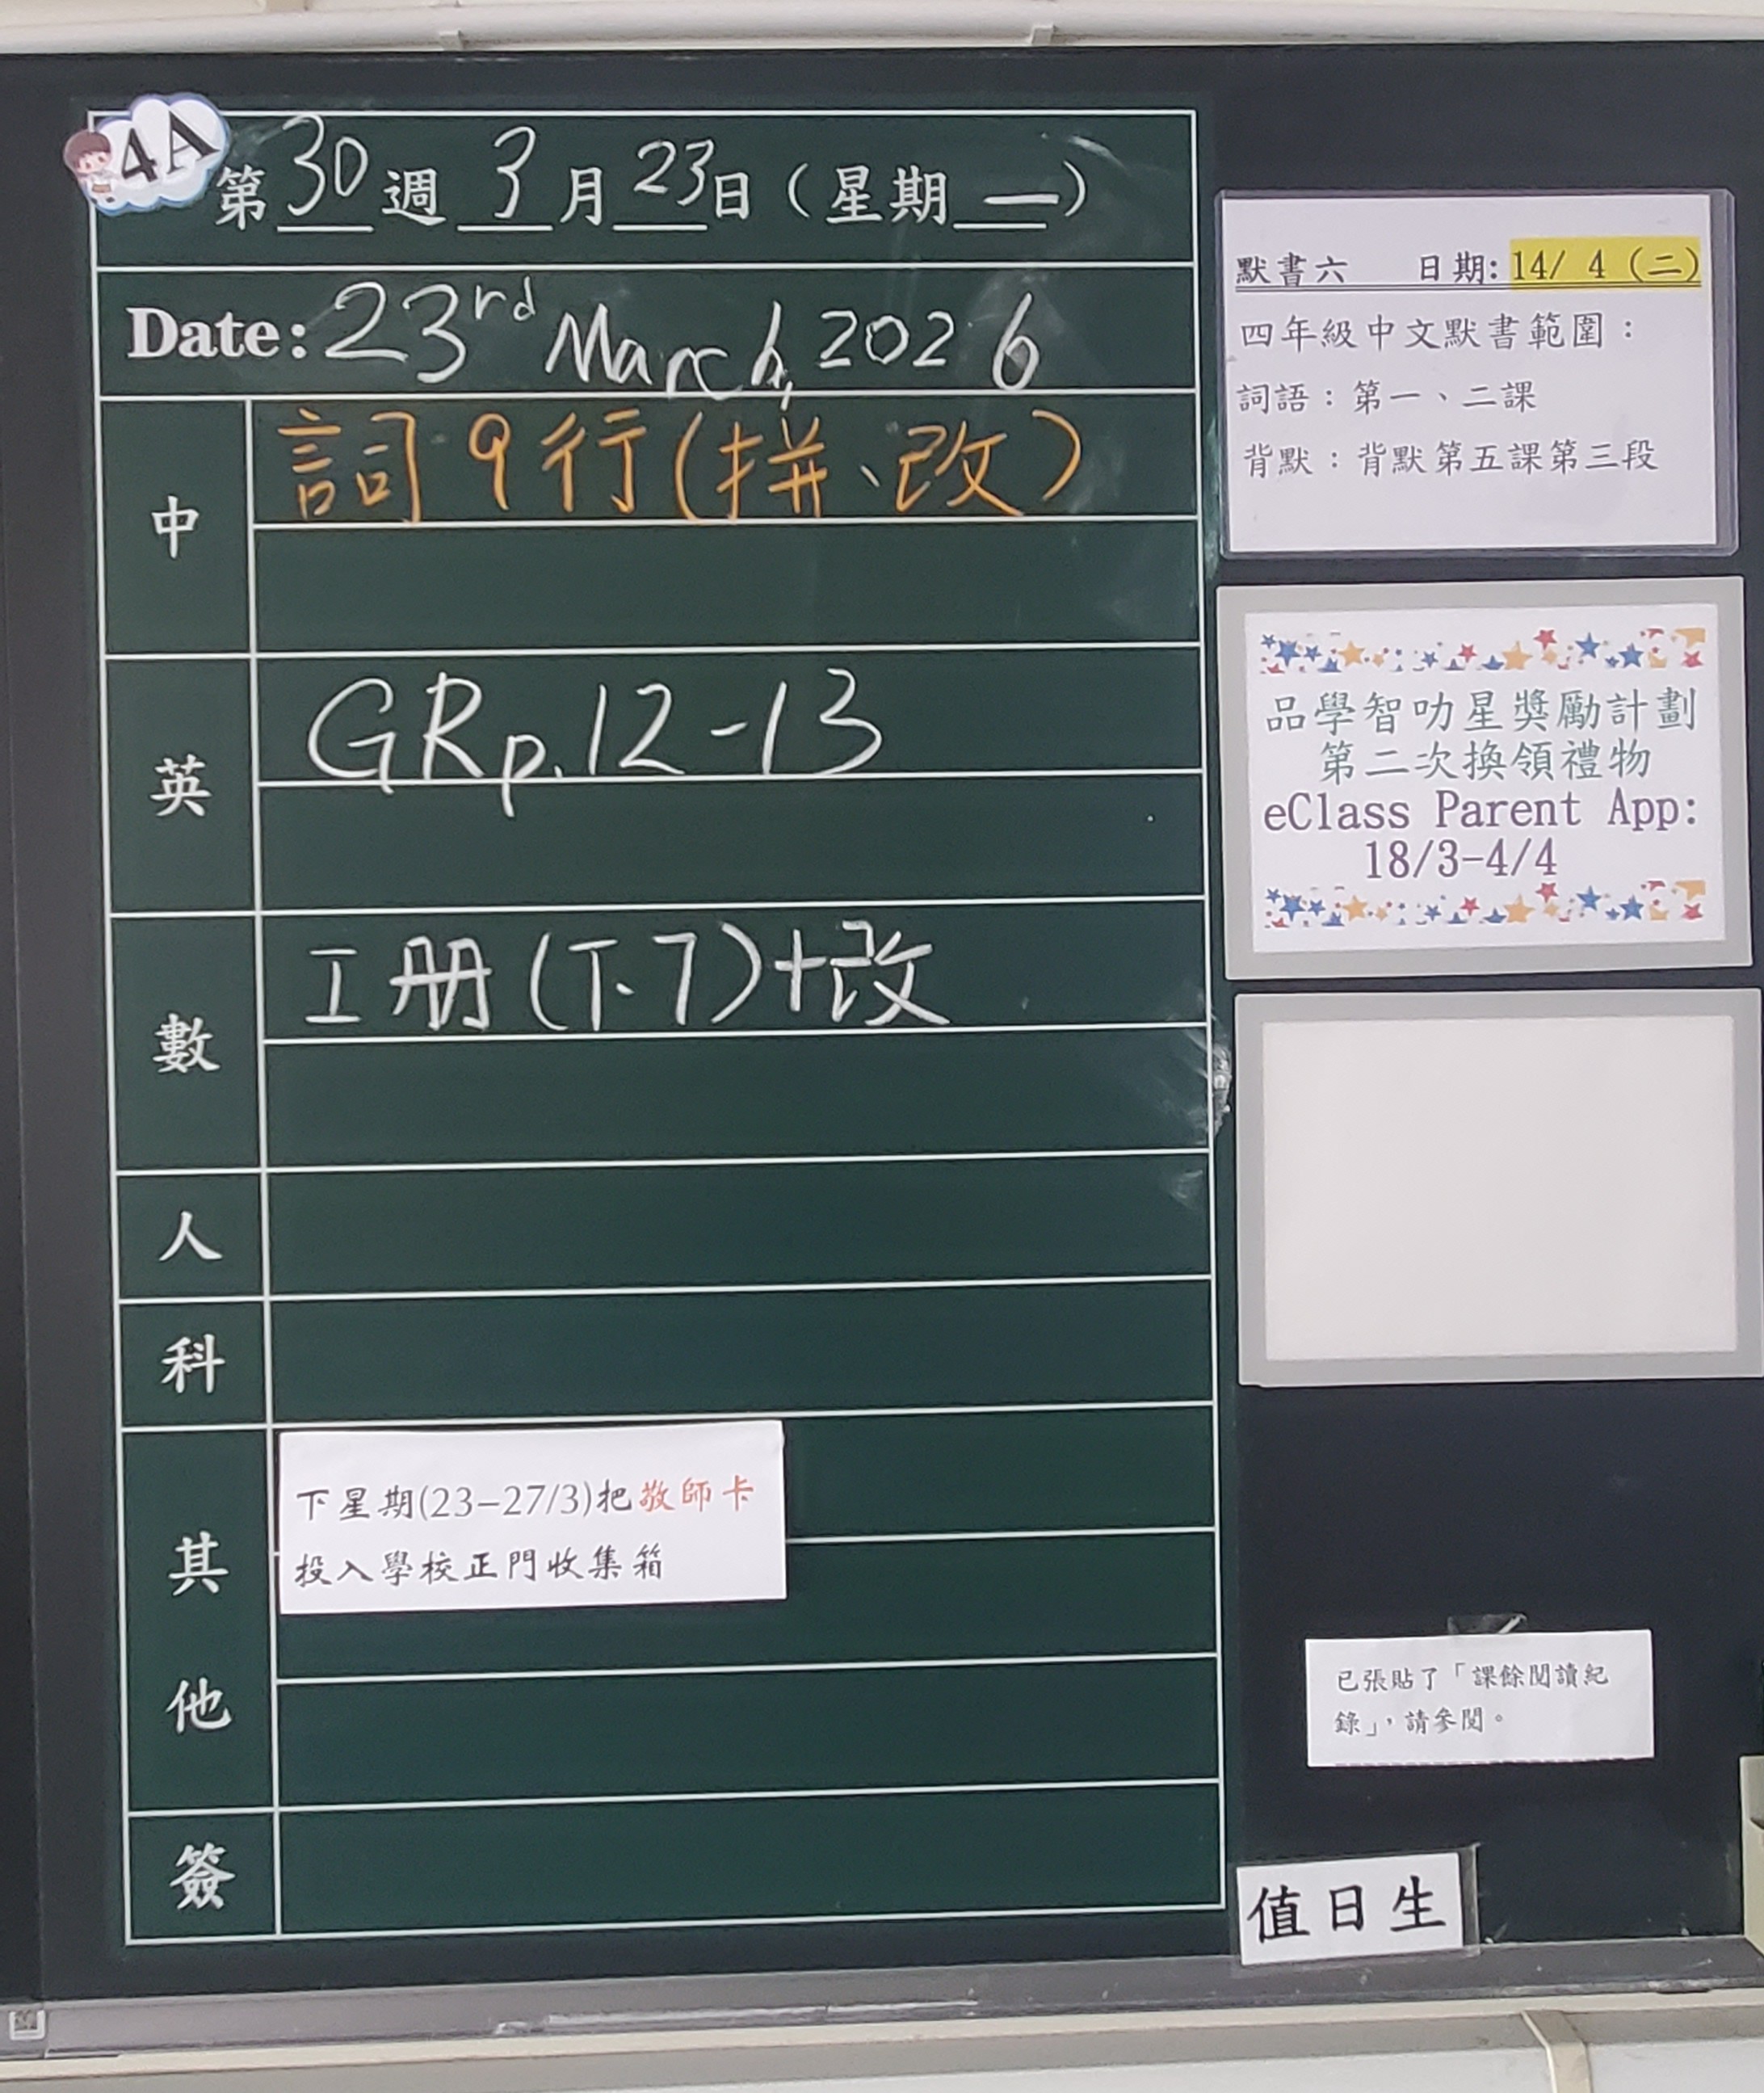 4A
第30週3月23日(星期一)
Date: 23rd March, 2026
中
詞9行(拼、改)
英
GR p.12-13
數
工册(下.7)+改
人
科
其他
下星期(23-27/3)把敬師卡
投入學校正門收集箱
簽
默書六 日期:14/ 4 (二)
四年級中文默書範圍:
詞語:第一、二課
背默:背默第五課第三段
品學智叻星獎勵計劃
第二次換領禮物
eClass Parent App:
18/3-4/4
已張貼了「課餘閱讀紀
錄」,請參閱。
值日生